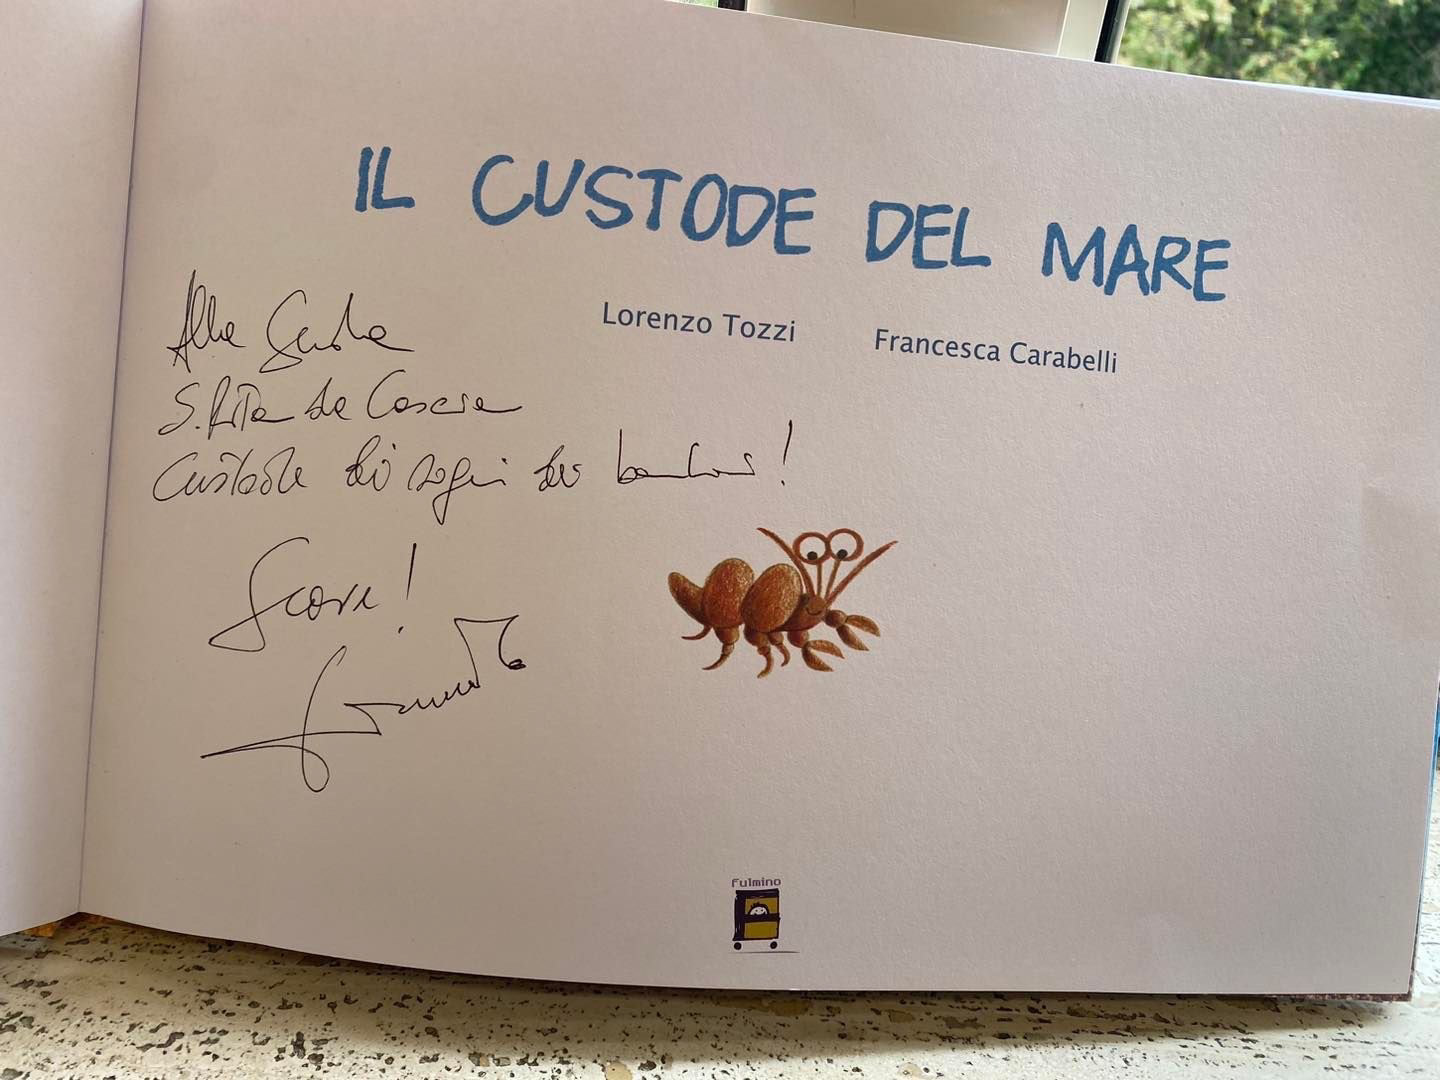 IL CUSTODE DEL MARE
Lorenzo Tozzi Francesca Carabelli
Alla Scuola
S. Rita da Cascia
Custode di sogni dei bambini!
Fulmino